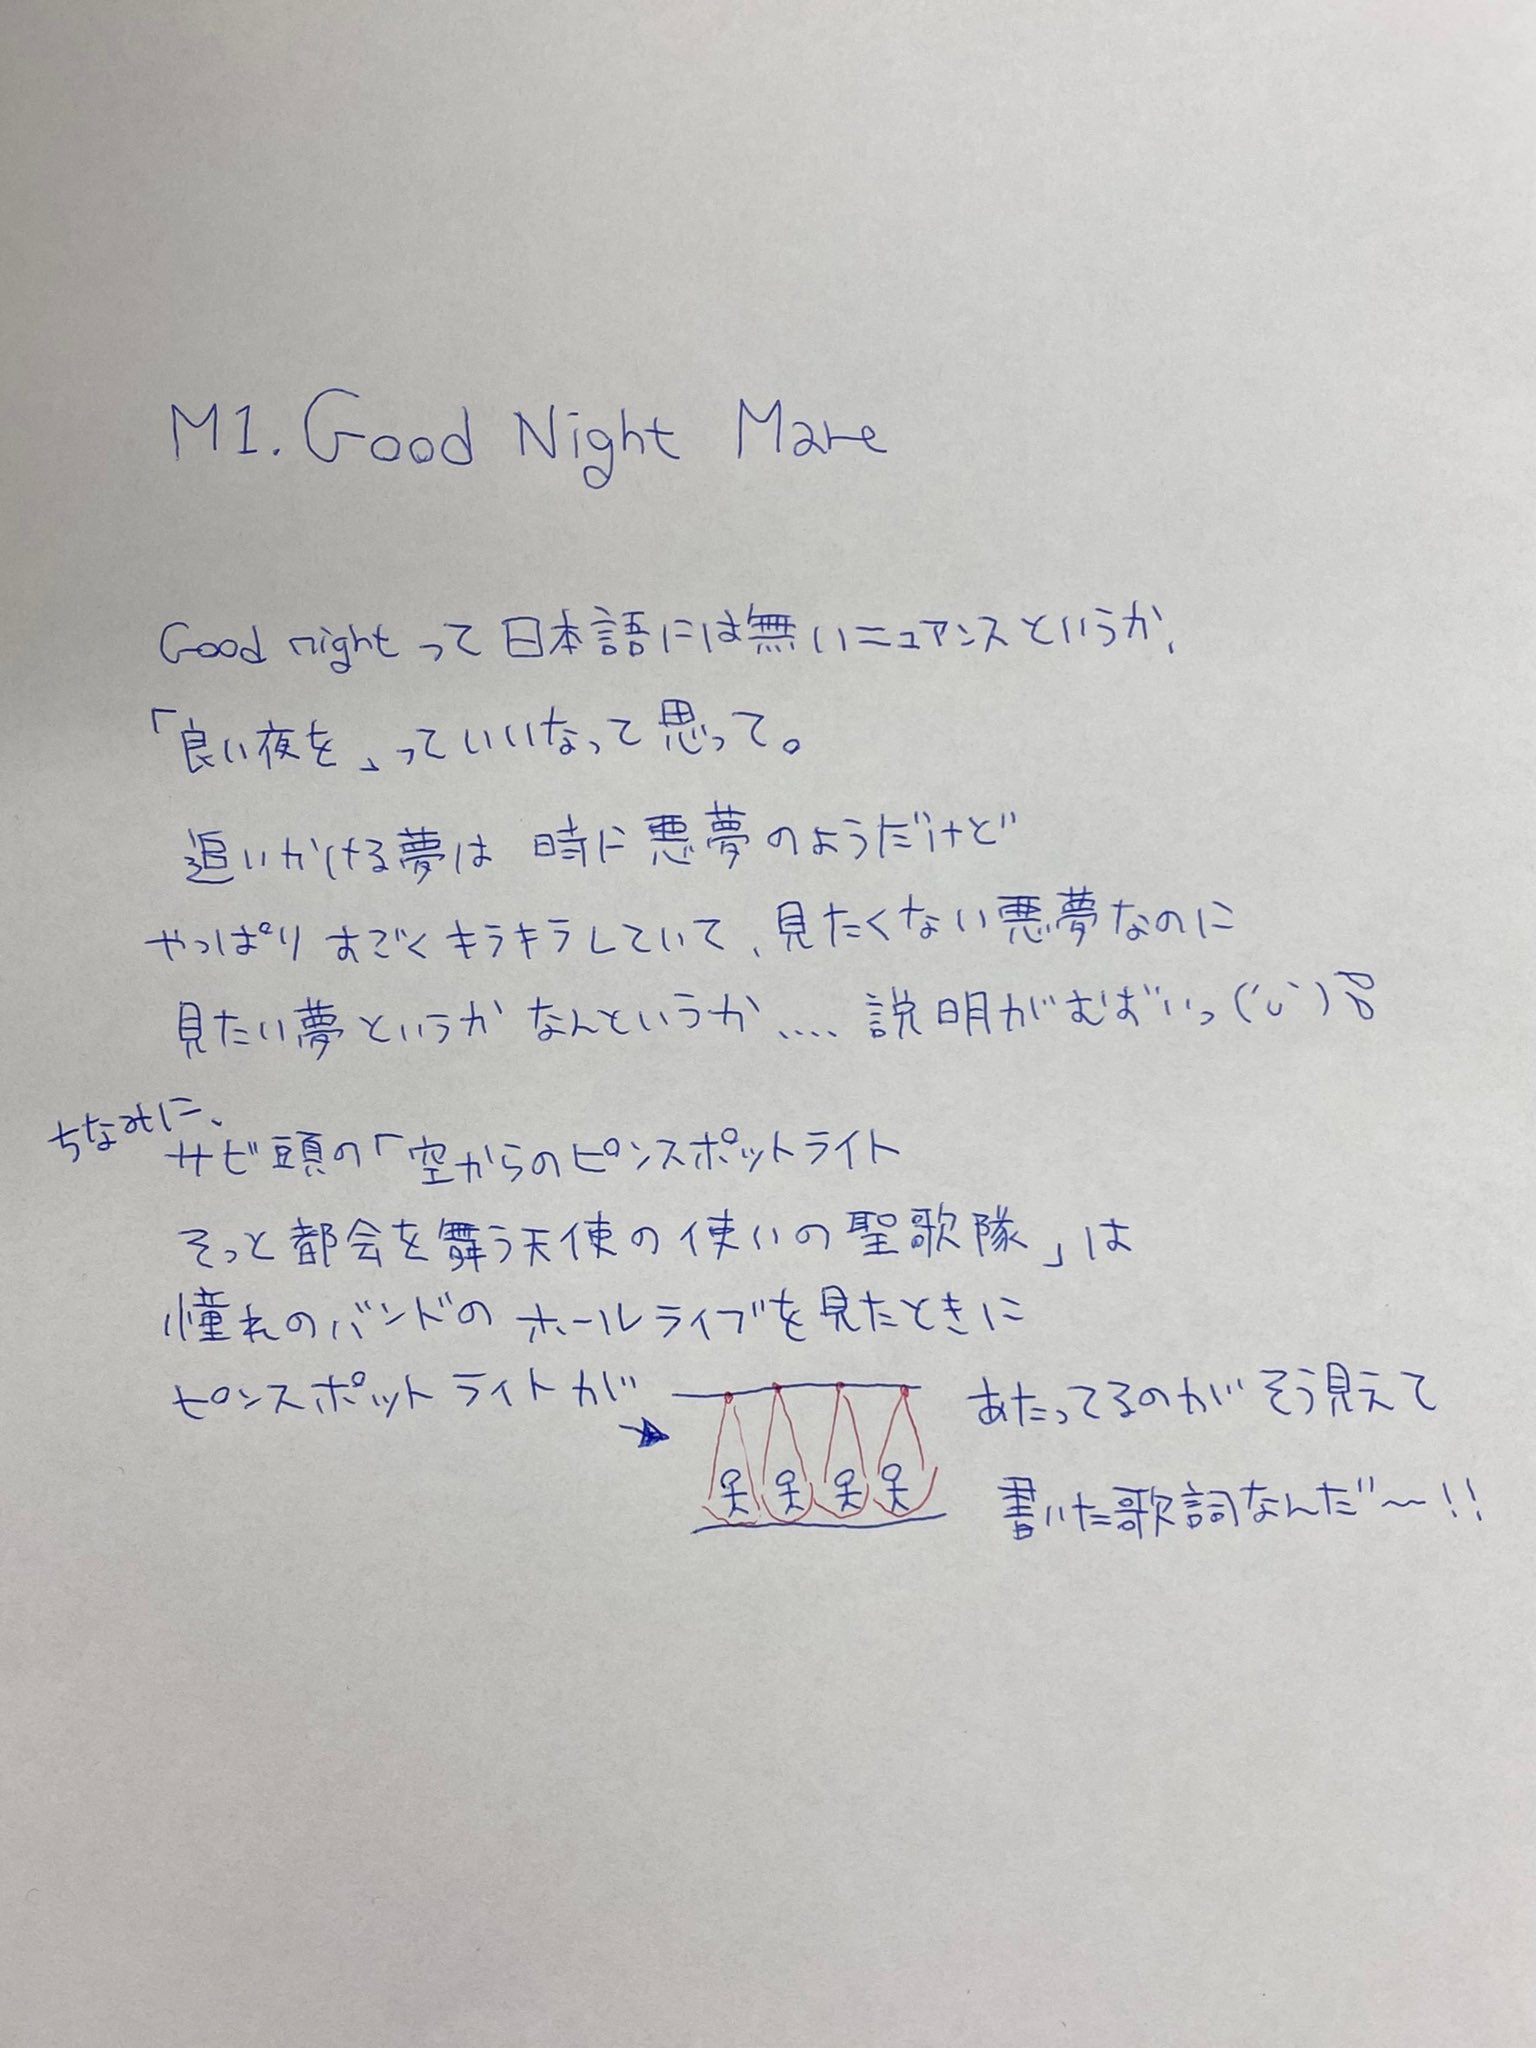 M1. Good Night Mare
Good nightって日本語には無いニュアンスというか、
「良い夜を」っていいなって思って。
追いかける夢は 時に悪夢のようだけど
やっぱりすごくキラキラしていて、見たくない悪夢なのに
見たい夢というかなんというか、、、、説明がむずいっ
ちなみに、
サビ頭の「空からのピンスポットライト
そっと都会を舞う天使の使いの聖歌隊」は
憧れのバンドのホールライブを見たときに
ピンスポットライトが
あたってるのがそう見えて
書いた歌詞なんだ〜!!